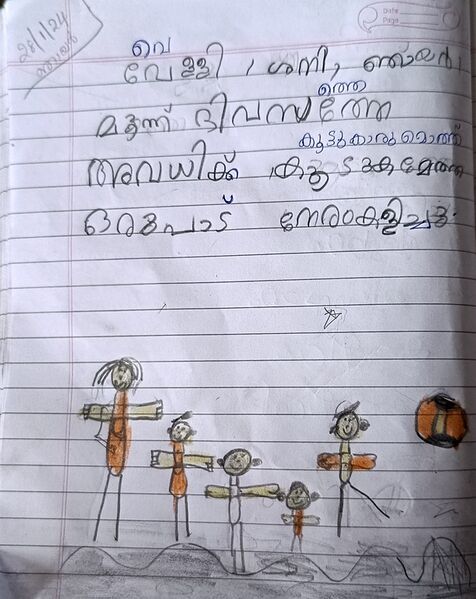 Date
Page
28/1/24
ഞായർ
വെ
വേള്ളി , ശനി, ഞായർ
ത്തെ
മൂന്ന് ദിവസത്തേ
കൂട്ടുകാരുമൊത്ത്
അവധിക്ക്
ഒരുപാട് നേരംകളിച്ചു.